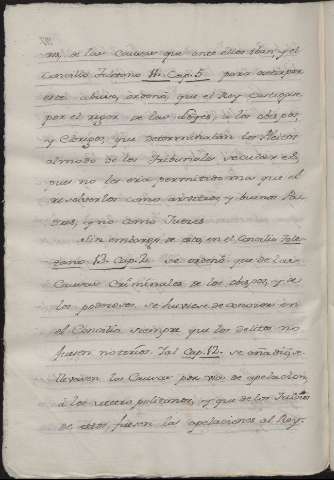 de las Causas que ante ellos iban, y el
Concilio Toledano 11. Cap. 5. para
este abuso, ordenó, que el Rey castigase
por el rigor de las Leyes, a los obispos
y Clerigos, que determinaban los Pleitos
al modo de los Tribunales seculares,
pues no les era permitido mas que el
resolverlos como arvitros, y buenos Pa-
dres, y no como Jueces
Sin embargo de esto, en el Concilio Tole-
dano 13. Cap. 2. se ordenó que de las
Causas Criminales de los obispos, y de
los poderosos se huviese de conocer en
el Concilio siempre que los delitos no
fuesen notorios. Y al Cap. 12. se añadió, se
llevasen las Causas por via de apelacion,
a los metropolitanos, y que de los Juicios
de estos, fuesen las apelaciones al Rey.